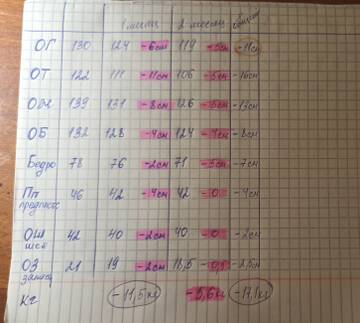 1 месяц 2 месяц общее
ОГ 130 124 -6см 119 -5см -11см
ОТ 122 111 -11см 106 -5см -16см
ОЖ 139 131 -8см 126 -5см -13см
ОБ 132 128 -4см 124 -4см -8см
Бедро 78 76 -2см 71 -5см -7см
Пп 46 42 -4см 42 -0 -4см
предплеч
ОШ 42 40 -2см 40 -0 -2см
шея
ОЗ 21 19 -2см 18,5 -0,5 -2,5см
запяст
КГ -11,5кг -5,6кг -17,1кг